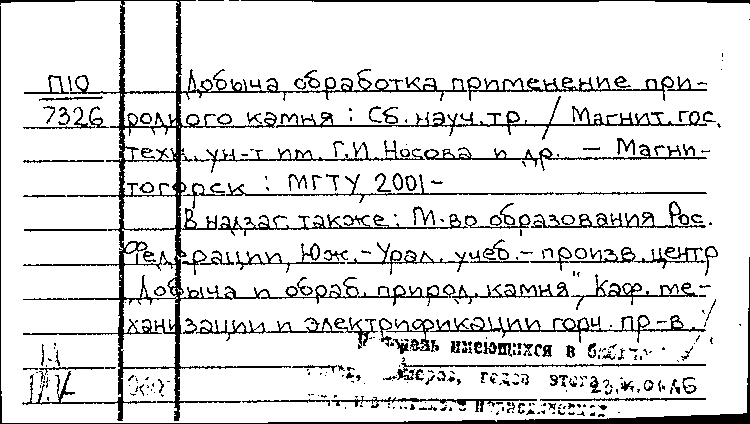 П10
7326
Добыча, обработка, применение при-
родного камня : Сб. науч. тр. / Магнит. гос.
техн. ун-т им. Г.И. Носова и др. — Магни-
тогорск : МГТУ, 2001-
В надзаг. также: М-во образования Рос.
Федерации, Юж.-Урал. учеб.-произв. центр
"Добыча и обраб. природ. камня", Каф. ме-
ханизации и электрификации горн. пр-в.
имеющихся в
годов этого